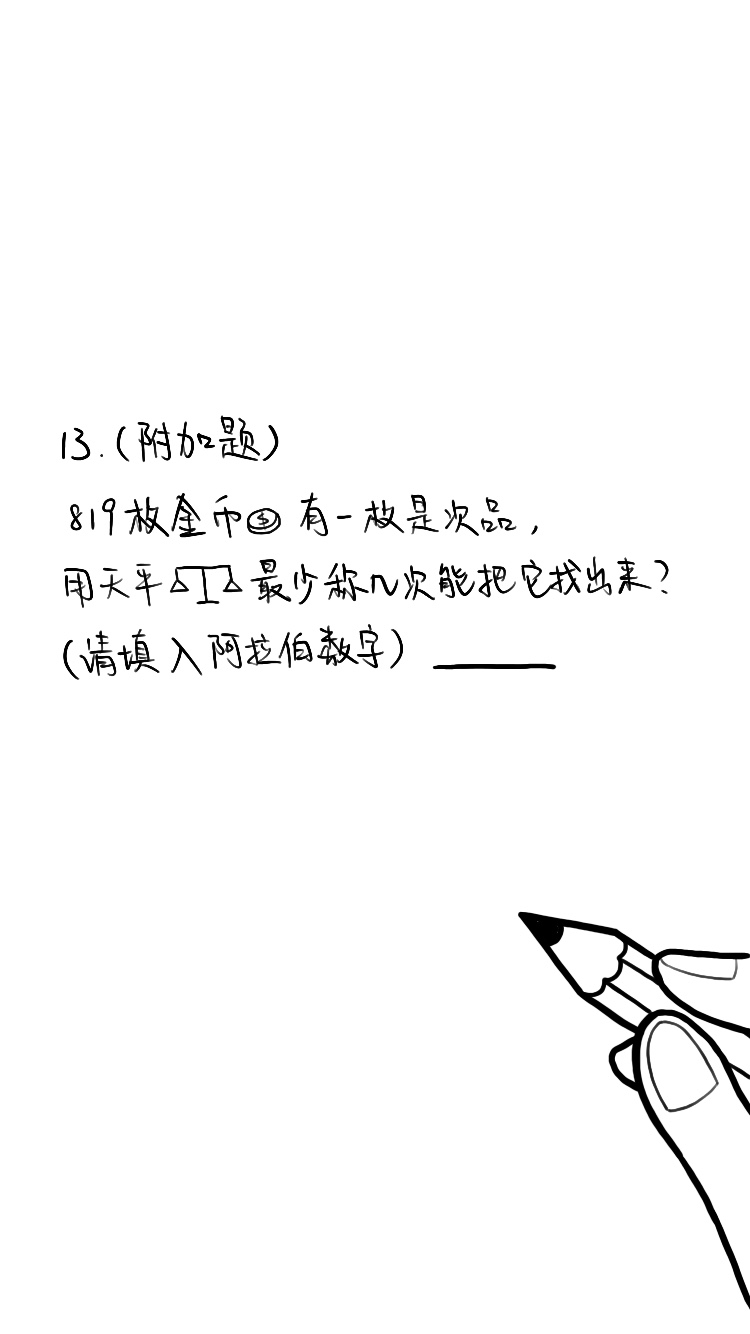 13.(附加题)
819枚金币 有一枚是次品,
用天平 最少称几次能把它找出来?
(请填入阿拉伯数字)